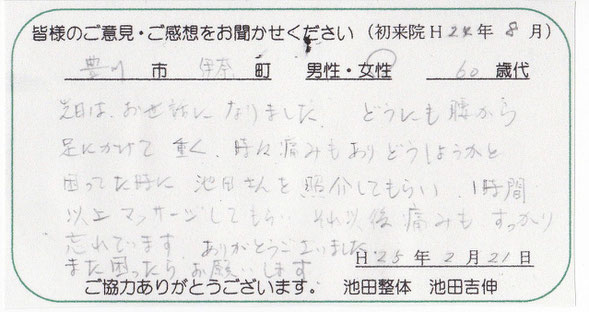 皆様のご意見・ご感想をお聞かせください（初来院H24年8月）
豊川市 伊奈町 男性・女性 60歳代
先日は、お世話になりました。どうにも腰から
足にかけて重く、時々痛みもありどうしようかと
困ってた時に池田さんを照介してもらい、1時間
以上マッサージしてもらいそれ以後痛みもすっかり
忘れています ありがとうございました
また困ったらお願いします
H25年2月21日
ご協力ありがとうございます。 池田整体 池田吉伸